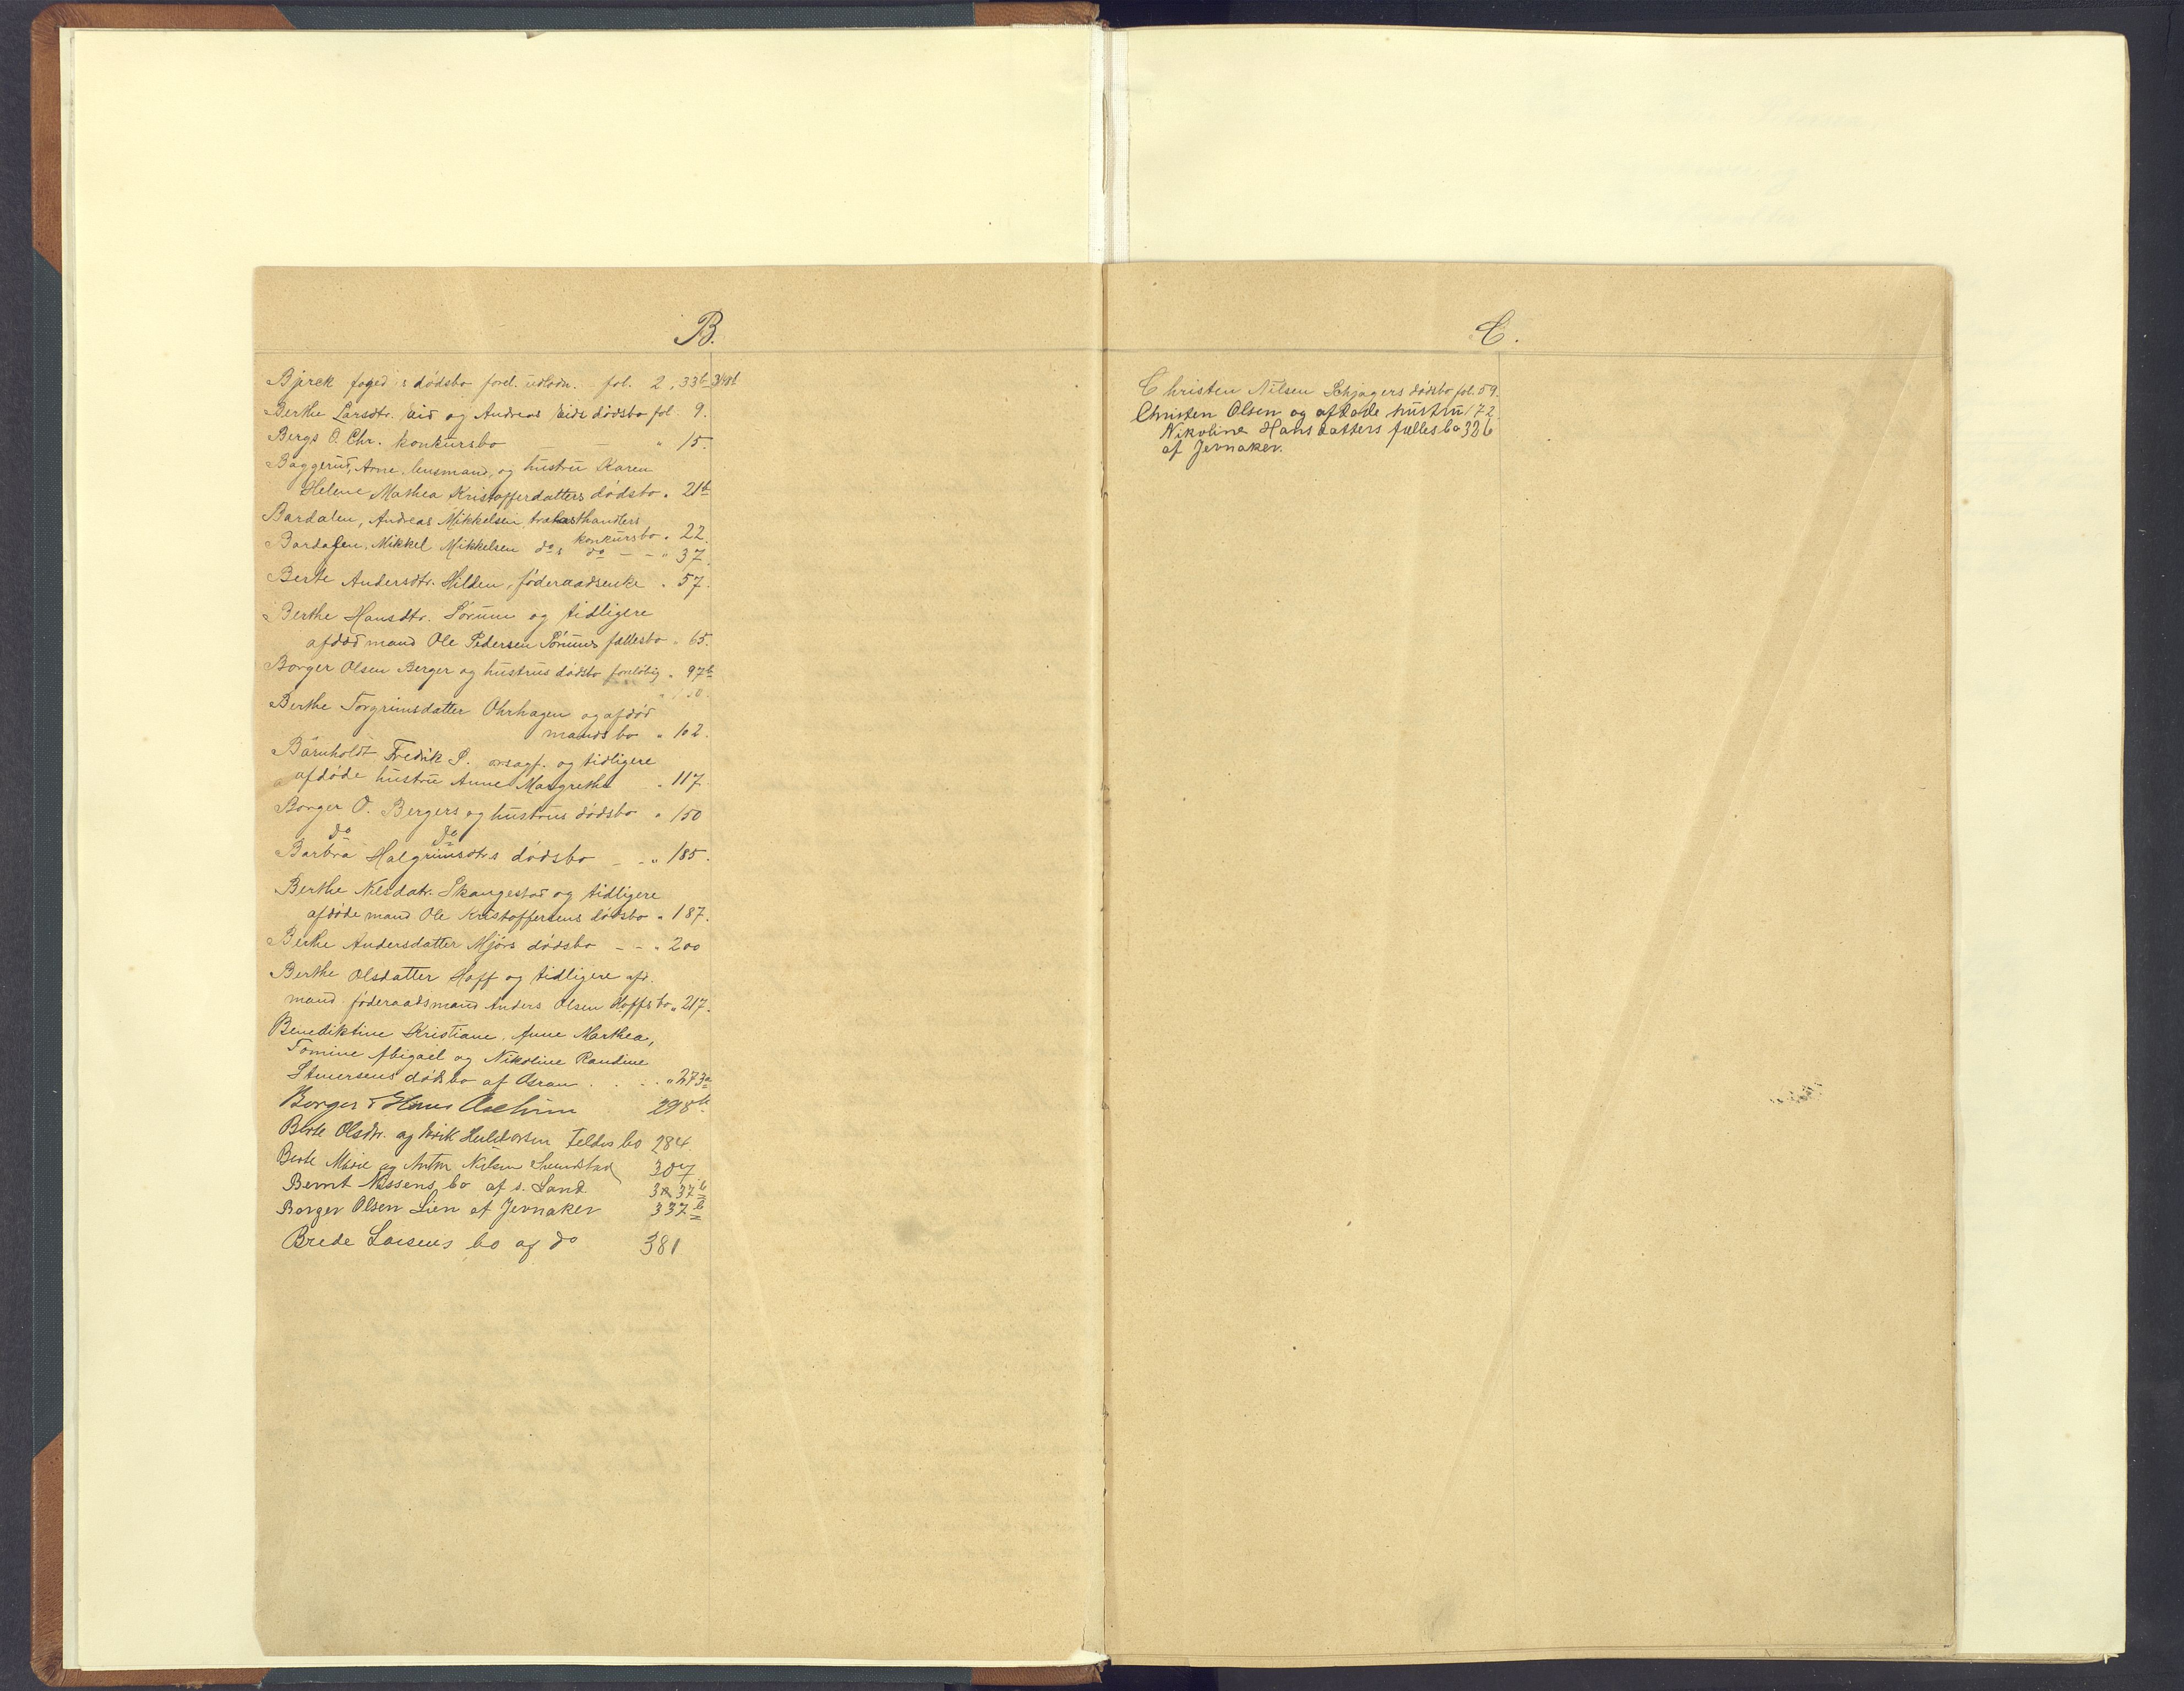 B.
Bjerck foged's dødsbo forel. udlodn. fol. 2, 33b
Berthe Larsdtr. Eid og Andreas Eids dødsbo fol. 9.
Bergs O. Chr. konkursbo — — " 15.
Baggerud, Arne, husmand, og hustru Karen
Helene Mathea Kristofferdatters dødsbo " 21b
Bardalen, Andreas Mikkelsen, trælasthandlers
konkursbo " 22.
Bardalen, Mikkel Mikkelsen do's do — — " 37.
Berte Andersdtr. Hilden, føderaadsenke " 57.
Berthe Hansdtr. Sørum og tidligere
afdød mand Ole Pedersen Sørums fællesbo " 65.
Borger Olsen Berger og hustrus dødsbo foreløbig " 97b
Berthe Torgrimsdatter Ohrhagen og afdød
mands bo " 102.
Bärnholdt Fredrik S. orsagf. og tidligere
afdøde hustru Anne Margrethe " 117.
Borger O. Bergers og hustrus dødsbo " 150
do do
Barbra Halgrimsdtrs dødsbo — — " 185.
Berthe Nilsdatr. Skangestad og tidligere
afdøde mand Ole Kristoffersens dødsbo " 187.
Berthe Andersdatter Mjørs dødsbo — — " 200
Berthe Olsdatter Hoff og tidligere afd.
mand føderaadsmand Anders Olsen Hoffs bo " 217.
Benediktine Kristiane, Anne Marthea,
Tomine Abigael og Nikoline Randine
Stenersens dødsbo af Asran . . . " 273a
Borger Hans 298b
Berte Olsdtr. og Erik bo 284.
Berte Marie og Anton Nilsen 307
Bernt Nissens bo af s. Land 337b
Borger Olsen Lien af Jevnaker 337b
Brede Larsens bo af do 381
C.
Christen Nilsen Schjagers dødsbo fol. 59.
Christen Olsen og afdøde hustru 172
Nikoline Hansdatters fællesbo 326
af Jevnaker.